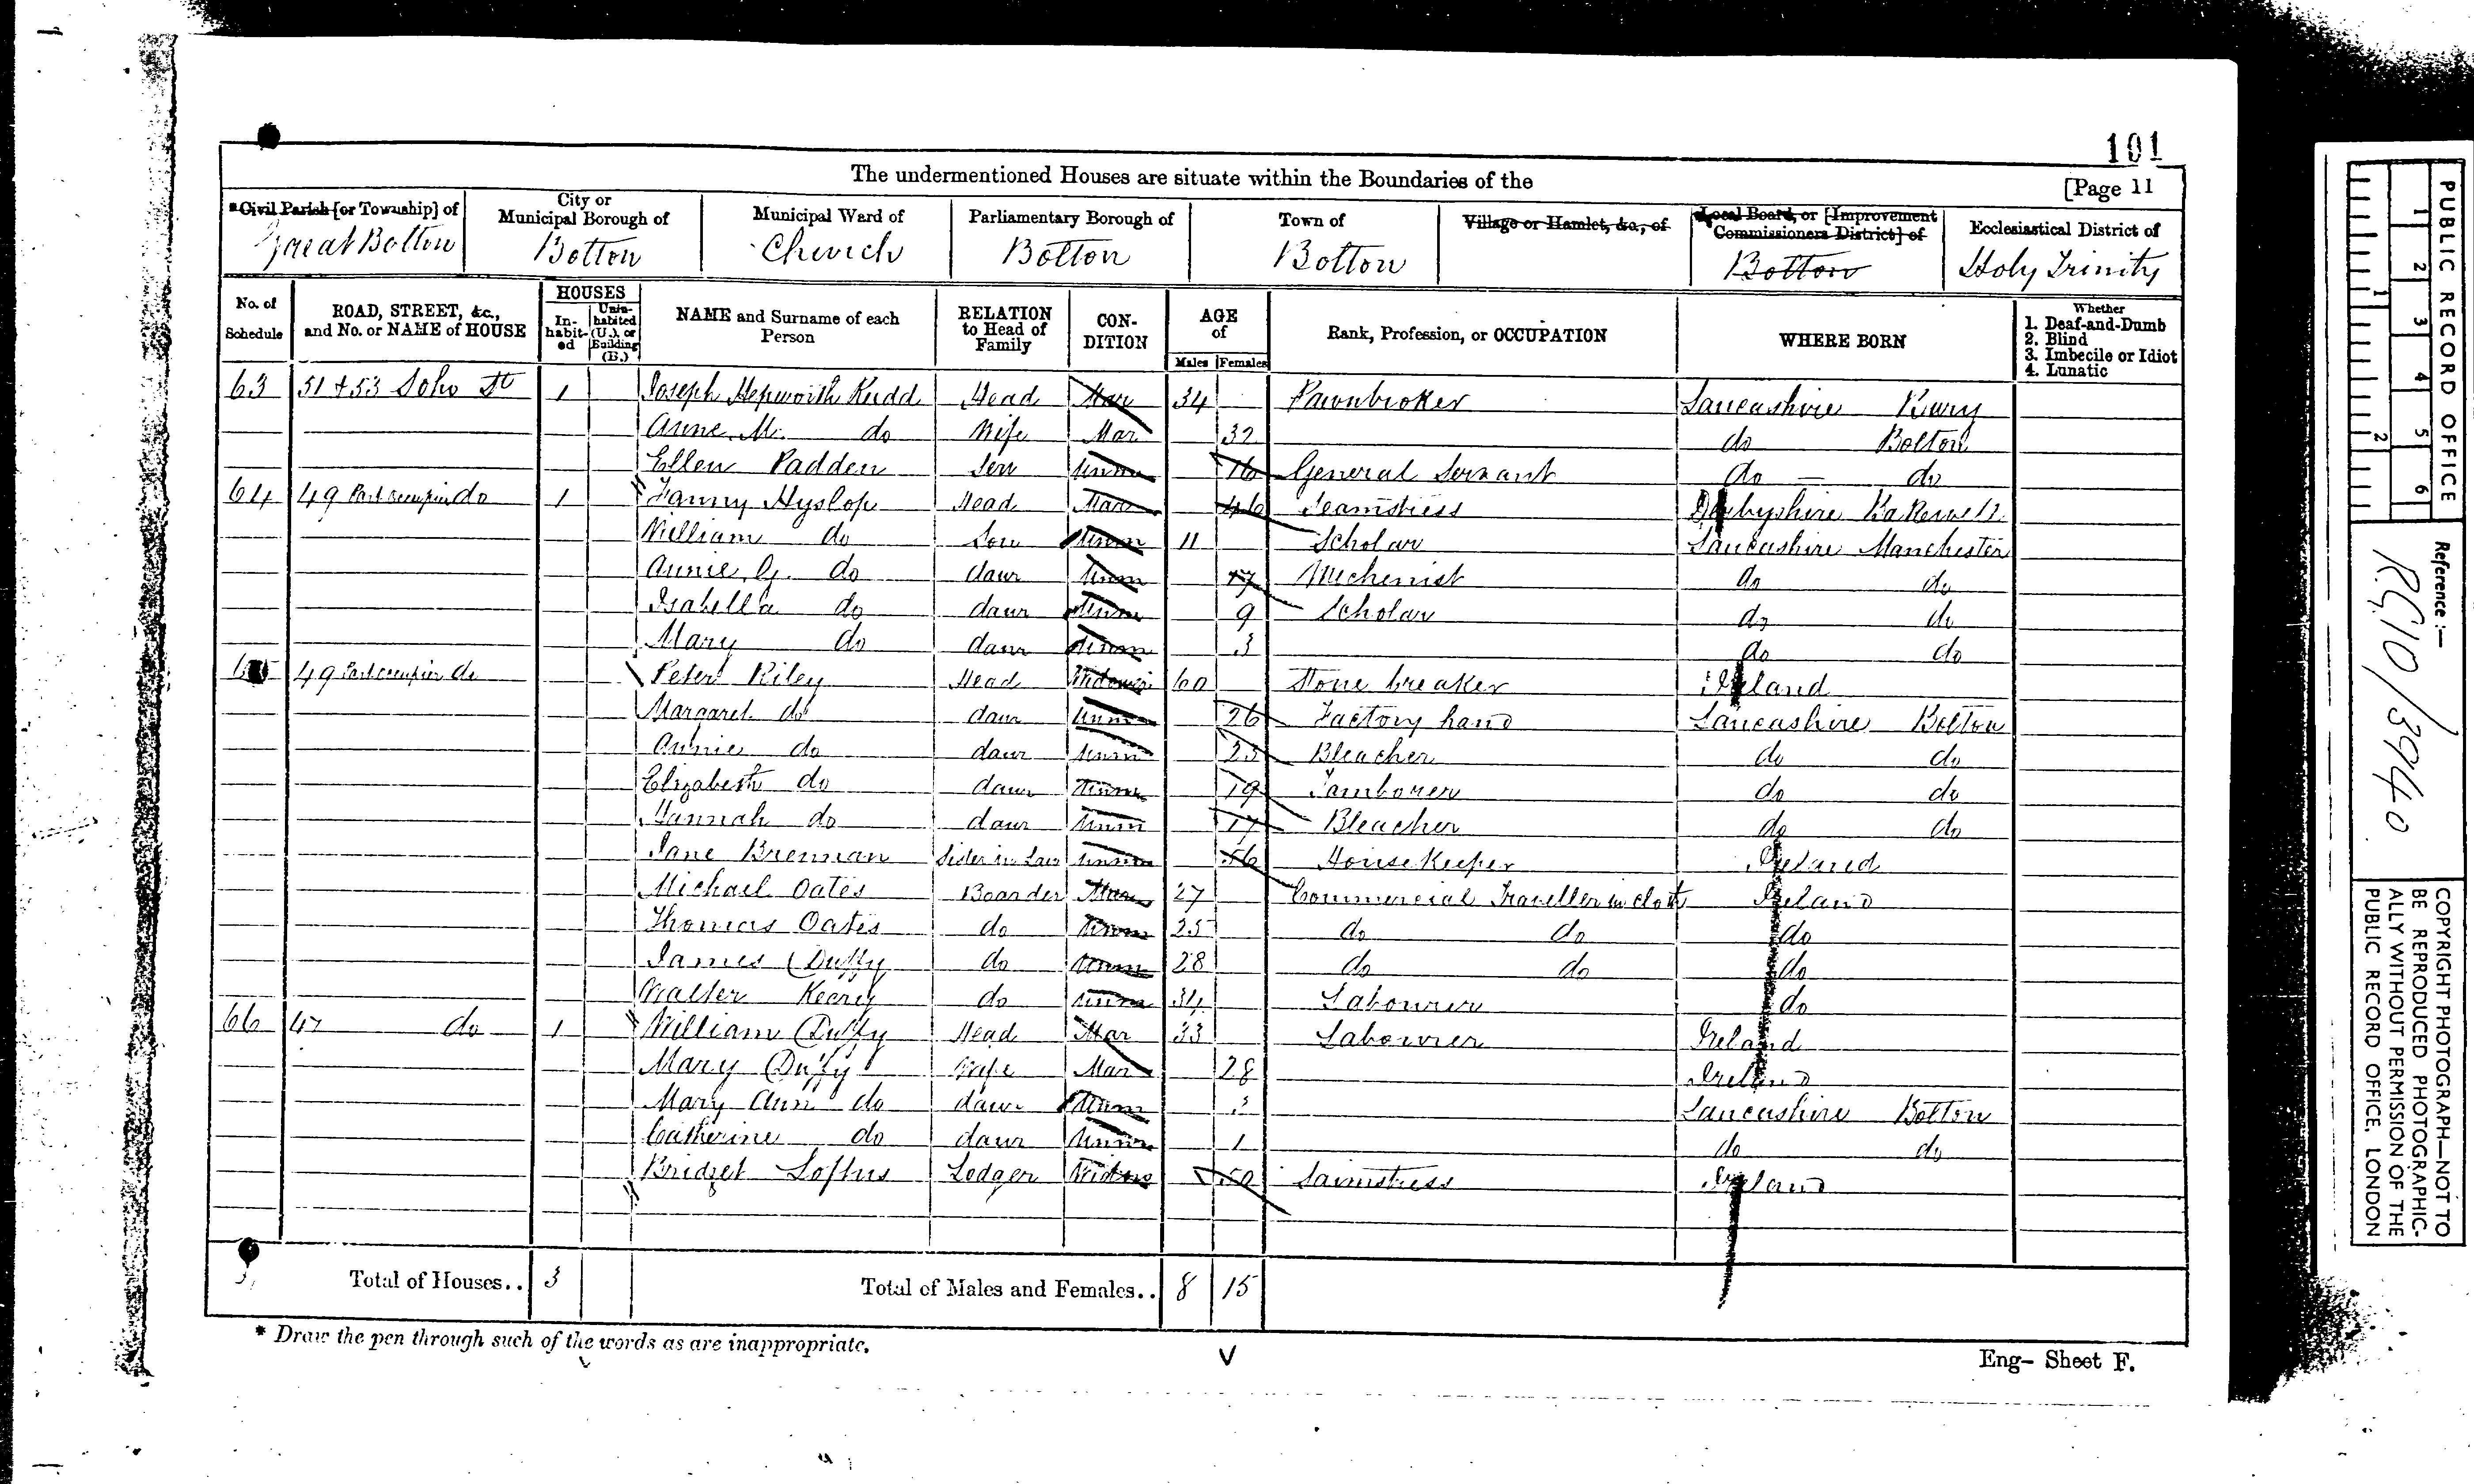 101
The undermentioned Houses are situate within the Boundaries of the [Page 11
*Civil Parish [or Township] of City or Municipal Borough of Municipal Ward of Parliamentary Borough of Town of Village or Hamlet, &c., of Local Board, or [Improvement Commissioners District] of Ecclesiastical District of
Great Bolton Bolton Church Bolton Bolton Bolton Holy Trinity
No. of Schedule ROAD, STREET, &c., and No. or NAME of HOUSE HOUSES In-habit-ed Unin-habited (U.), or Building (B.) NAME and Surname of each Person RELATION to Head of Family CON-DITION AGE of Males Females Rank, Profession, or OCCUPATION WHERE BORN Whether 1. Deaf-and-Dumb 2. Blind 3. Imbecile or Idiot 4. Lunatic
63 51 + 53 Soho St 1 Joseph Hepworth Rudd Head Mar 34 Pawnbroker Lancashire Bury
Anne M. do Wife Mar 32 do Bolton
Ellen Padden Serv Unm 16 General Servant do do
64 49 Part occupier do 1 Fanny Hyslop Head Mar 46 Seamstress Derbyshire Bakewell
William do Son Unm 11 Scholar Lancashire Manchester
Annie G. do daur Unm 17 Mechenist do do
Isabella do daur Unm 9 Scholar do do
Mary do daur Unm 3 do do
65 49 Part occupier do Peter Riley Head Widower 60 Stone breaker Ireland
Margaret do daur Unm 26 Factory hand Lancashire Bolton
Annie do daur Unm 23 Bleacher do do
Elizabeth do daur Unm 19 Tamborer do do
Hannah do daur Unm 17 Bleacher do do
Jane Brennan Sister in Law Unm 56 House Keeper Ireland
Michael Oates Boarder Mar 27 Commercial Traveller in cloth Ireland
Thomas Oates do Unm 25 do do do
James Duffy do Unm 28 do do do
Walter Keary do Unm 34 Labourer do
66 47 do 1 William Duffy Head Mar 33 Labourer Ireland
Mary Duffy Wife Mar 28 Ireland
Mary Ann do daur Unm 3 Lancashire Bolton
Catherine do daur Unm 1 do do
Bridget Loftus Lodger Widow 50 Saimstress Ireland
Total of Houses.. 3 Total of Males and Females.. 8 15
* Draw the pen through such of the words as are inappropriate.
Eng- Sheet F.
PUBLIC RECORD OFFICE
1 2 3 4 5 6
1 2
Reference :-
RG10/3940
COPYRIGHT PHOTOGRAPH—NOT TO
BE REPRODUCED PHOTOGRAPHIC-
ALLY WITHOUT PERMISSION OF THE
PUBLIC RECORD OFFICE, LONDON